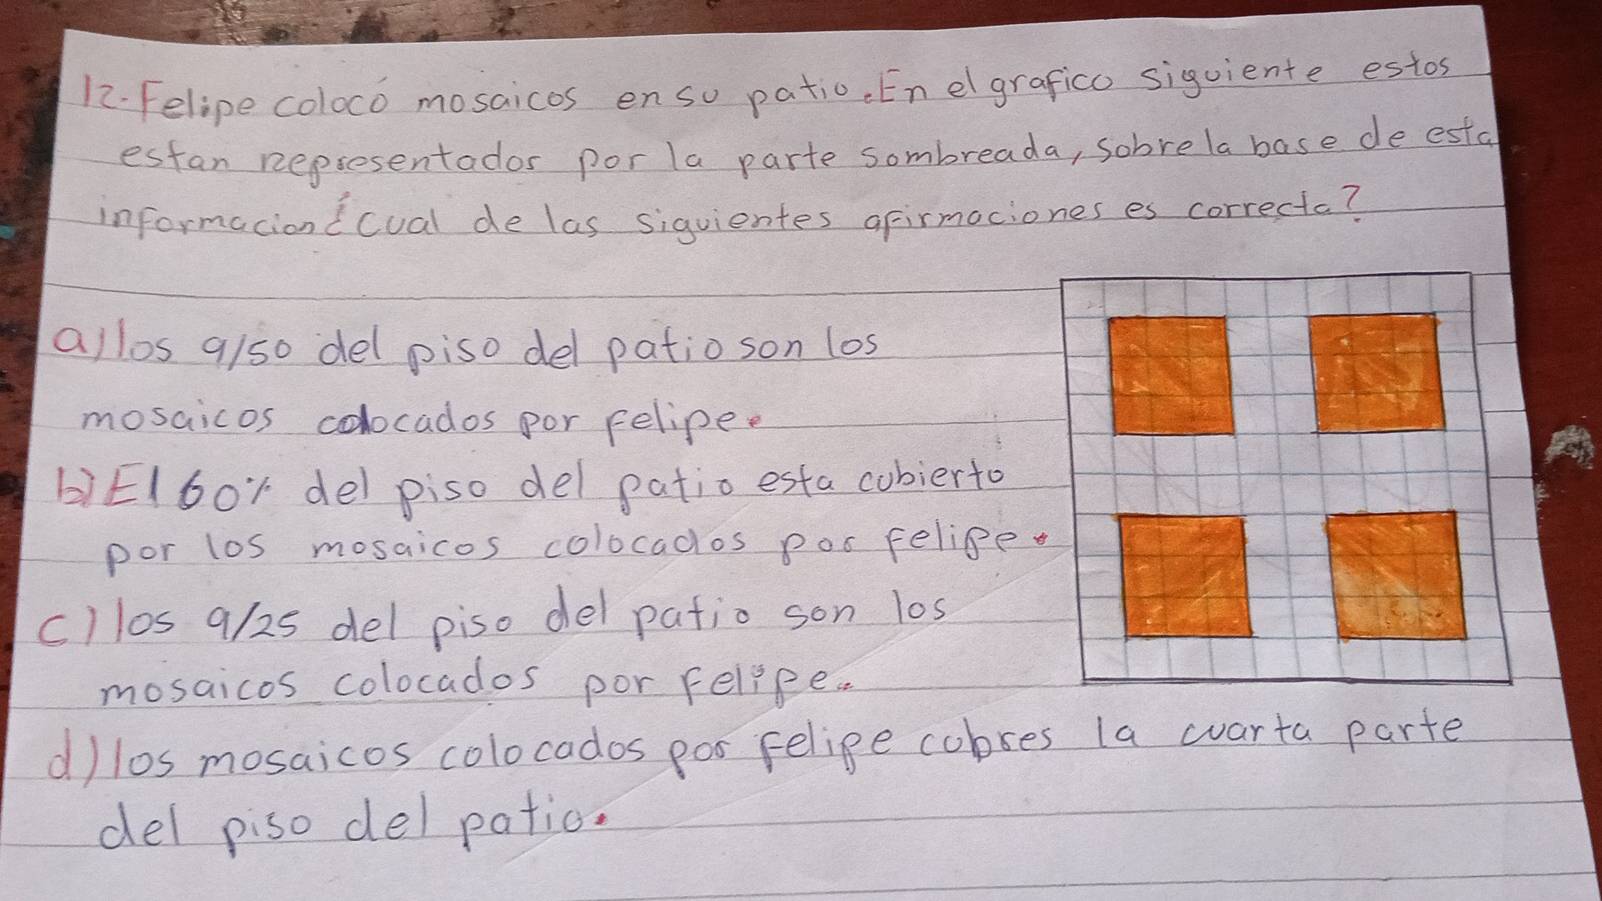 12. Felipe colocó mosaicos en su patio. En el grafico siguiente estos
estan representados por la parte sombreada, sobre la base de esta
informacion ¿cual de las siguientes afirmaciones es correcta?
a) los 9/50 del piso del patio son los
mosaicos colocados por felipe.
b) El 60% del piso del patio esta cubierto
por los mosaicos colocados por felipe.
c) los 9/25 del piso del patio son los
mosaicos colocados por felipe.
d) los mosaicos colocados por felipe cubres la cuarta parte
del piso del patio.